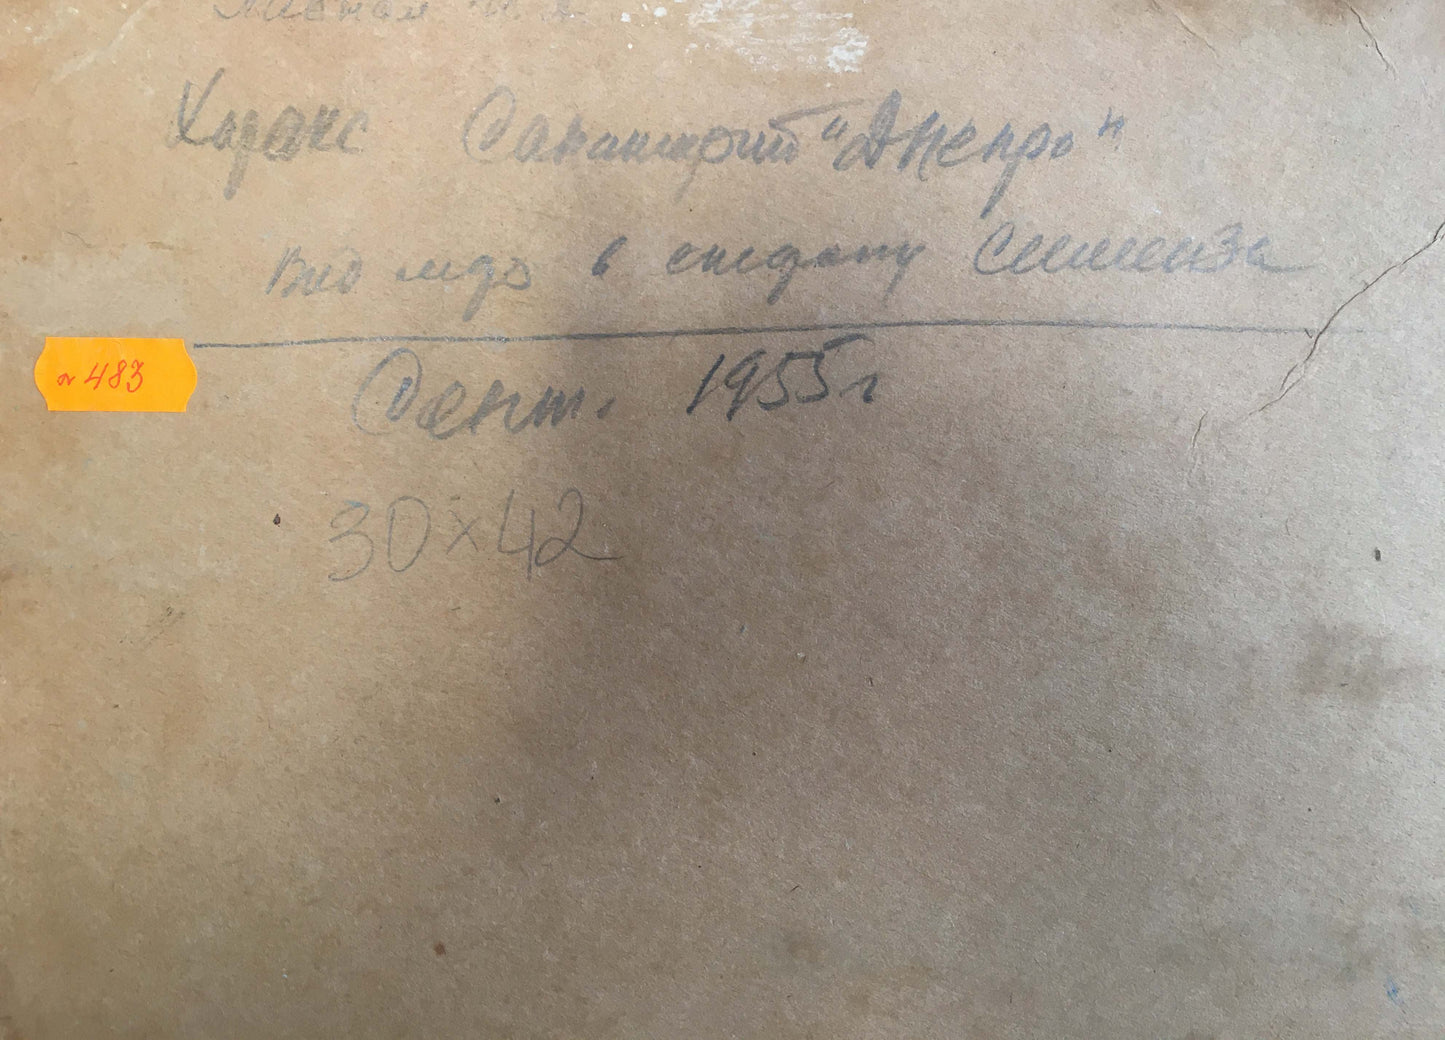 Харакс Санаторий "Днепр"
Вид моря в сторону Симеиза
Сент. 1955 г
№ 483
30 × 42